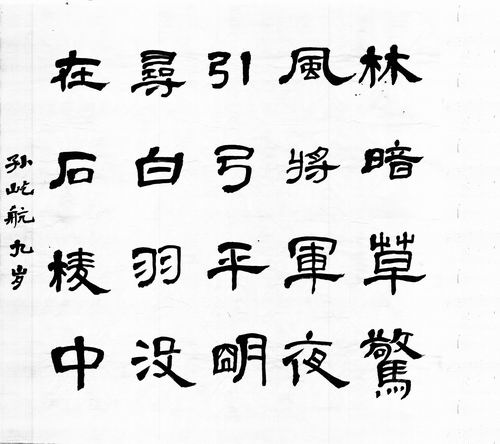 林暗草驚
風將軍夜
引弓平明
尋白羽没
在石棱中
孙屹航九岁